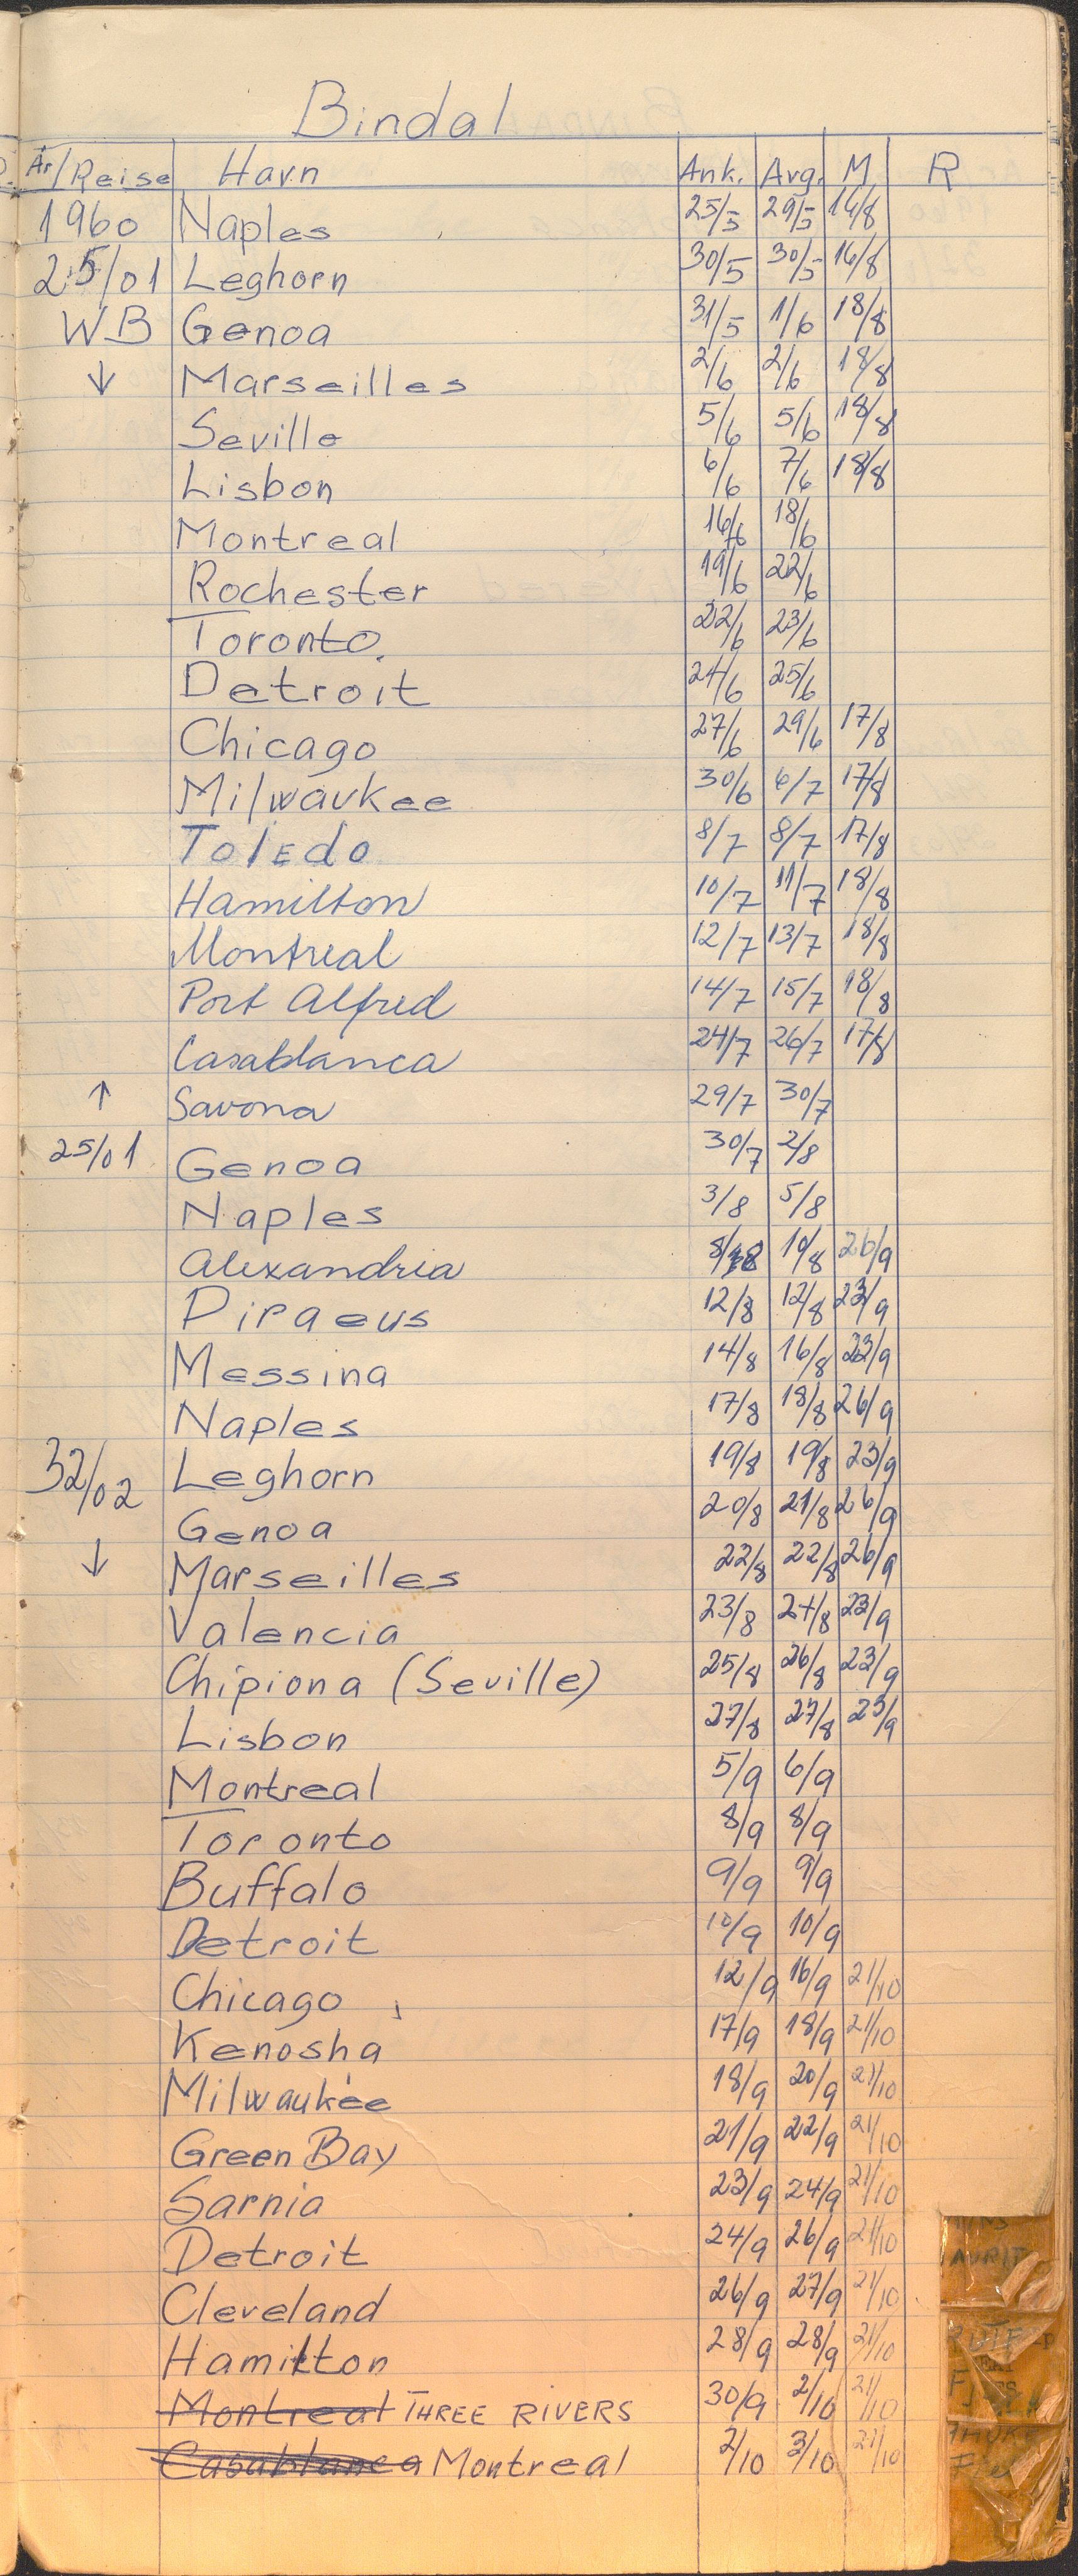 Bindal
År/Reise Havn Ank. Avg. M R
1960 Naples 25/5 29/5 16/8
25/01 Leghorn 30/5 30/5 16/8
WB Genoa 31/5 1/6 18/8
↓ Marseilles 2/6 2/6 18/8
Seville 5/6 5/6 18/8
Lisbon 6/6 7/6 18/8
Montreal 16/6 18/6
Rochester 19/6 22/6
Toronto. 22/6 23/6
Detroit 24/6 25/6
Chicago 27/6 29/6 17/8
Milwaukee 30/6 6/7 17/8
TolEdo 8/7 8/7 17/8
Hamilton 10/7 11/7 18/8
Montreal 12/7 13/7 18/8
Port Alfred 14/7 15/7 18/8
Casablanca 24/7 26/7 17/8
↑ Savona 29/7 30/7
25/01 Genoa 30/7 2/8
Naples 3/8 5/8
Alexandria 8/8 10/8 26/9
Piraeus 12/8 12/8 23/9
Messina 14/8 16/8 23/9
Naples 17/8 18/8 26/9
32/02 Leghorn 19/8 19/8 23/9
Genoa 20/8 21/8 26/9
↓ Marseilles 22/8 22/8 26/9
Valencia 23/8 24/8 23/9
Chipiona (Seville) 25/8 26/8 23/9
Lisbon 27/8 27/8 23/9
Montreal 5/9 6/9
Toronto 8/9 8/9
Buffalo 9/9 9/9
Detroit 10/9 10/9
Chicago 12/9 16/9 21/10
Kenosha 17/9 18/9 21/10
Milwaukee 18/9 20/9 21/10
Green Bay 21/9 22/9 21/10
Sarnia 23/9 24/9 21/10
Detroit 24/9 26/9 21/10
Cleveland 26/9 27/9 21/10
Hamilton 28/9 28/9 21/10
Montreal THREE RIVERS 30/9 2/10 21/10
Casablanca Montreal 2/10 3/10 21/10